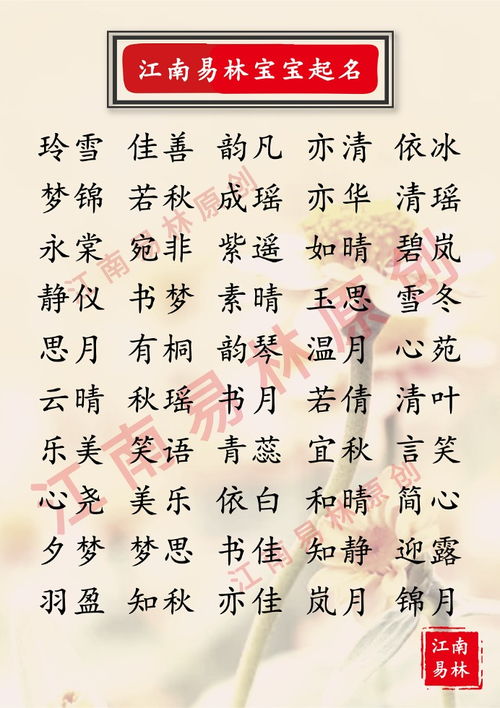 江南易林宝宝起名
玲雪 佳善 韵凡 亦清 依冰
梦锦 若秋 成瑶 亦华 清瑶
永棠 宛非 紫遥 如晴 碧岚
静仪 书梦 素晴 玉思 雪冬
思月 有桐 韵琴 温月 心苑
云晴 秋瑶 书月 若倩 清叶
乐美 笑语 青蕊 宜秋 言笑
心尧 美乐 依白 和晴 简心
夕梦 梦思 书佳 知静 迎露
羽盈 知秋 亦佳 岚月 锦月
江南易林原创
江南易林原创
江南易林原创
江南
易林